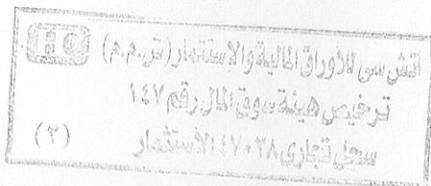 HC
اتش سى للأوراق المالية والإستثمار (ش.م.م)
ترخيص هيئة سوق المال رقم ١٤٧
سجل تجارى ٤٧٠٢٨ الأستثمار
(٢)